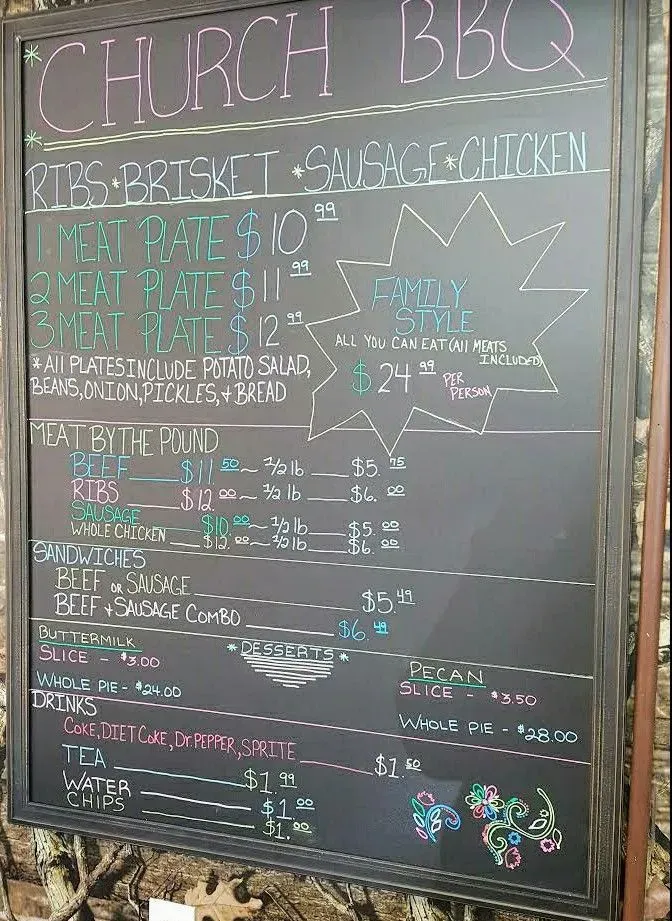 * CHURCH BBQ
*
RIBS * BRISKET * SAUSAGE * CHICKEN
1 MEAT PLATE $10.99
2 MEAT PLATE $11.99
3 MEAT PLATE $12.99
* All PLATES INCLUDE POTATO SALAD,
BEANS, ONION, PICKLES, + BREAD
FAMILY
STYLE
ALL YOU CAN EAT (All MEATS
INCLUDED)
$24.99 PER
PERSON
MEAT BY THE POUND
BEEF $11.50 ~ 1/2 lb $5.75
RIBS $12.00 ~ 1/2 lb $6.00
SAUSAGE $10.00 ~ 1/2 lb $5.00
WHOLE CHICKEN $12.00 ~ 1/2 lb $6.00
SANDWICHES
BEEF OR SAUSAGE $5.49
BEEF + SAUSAGE COMBO $6.49
* DESSERTS *
BUTTERMILK
SLICE - $3.00
WHOLE PIE - $24.00
PECAN
SLICE - $3.50
WHOLE PIE - $28.00
DRINKS
COKE, DIET COKE, Dr. PEPPER, SPRITE $1.50
TEA $1.99
WATER $1.00
CHIPS $1.00